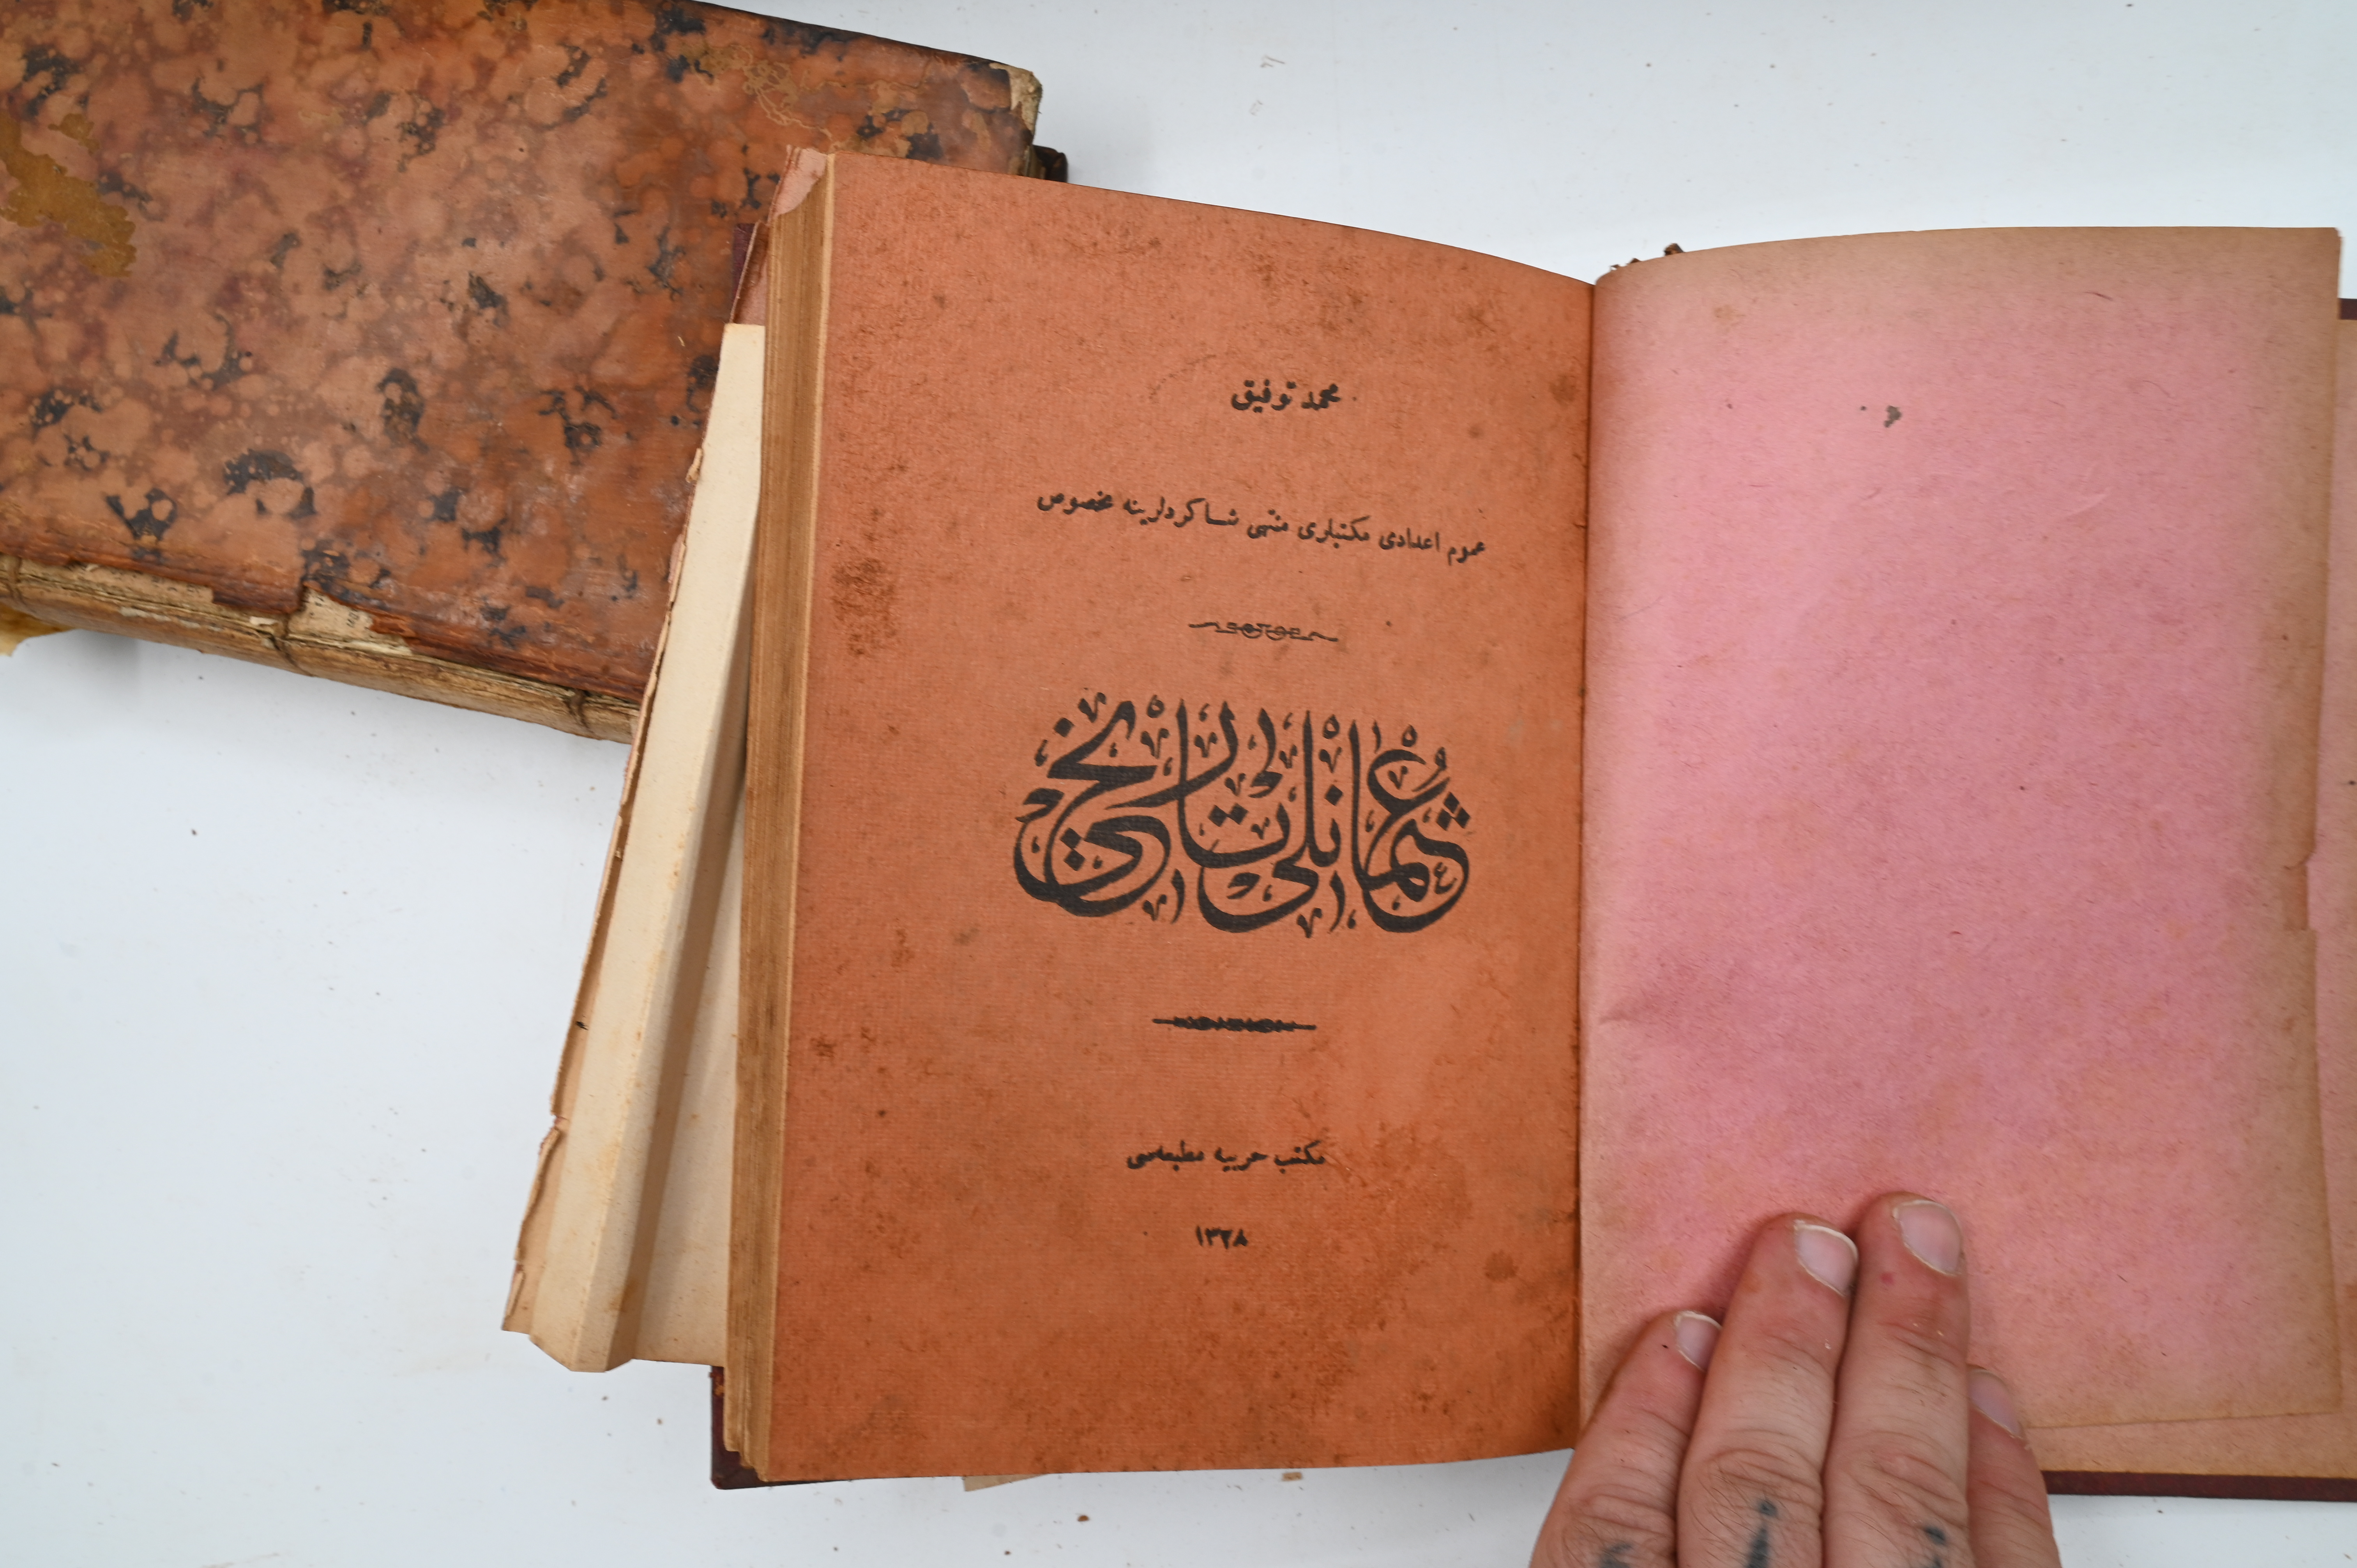 محمد توفيق
عموم اعدادى مكتبلرى منتهى شاكردلرينه مخصوص
عثمانلى تاريخى
مكتب حربيه مطبعه‌سى
١٣٢٨